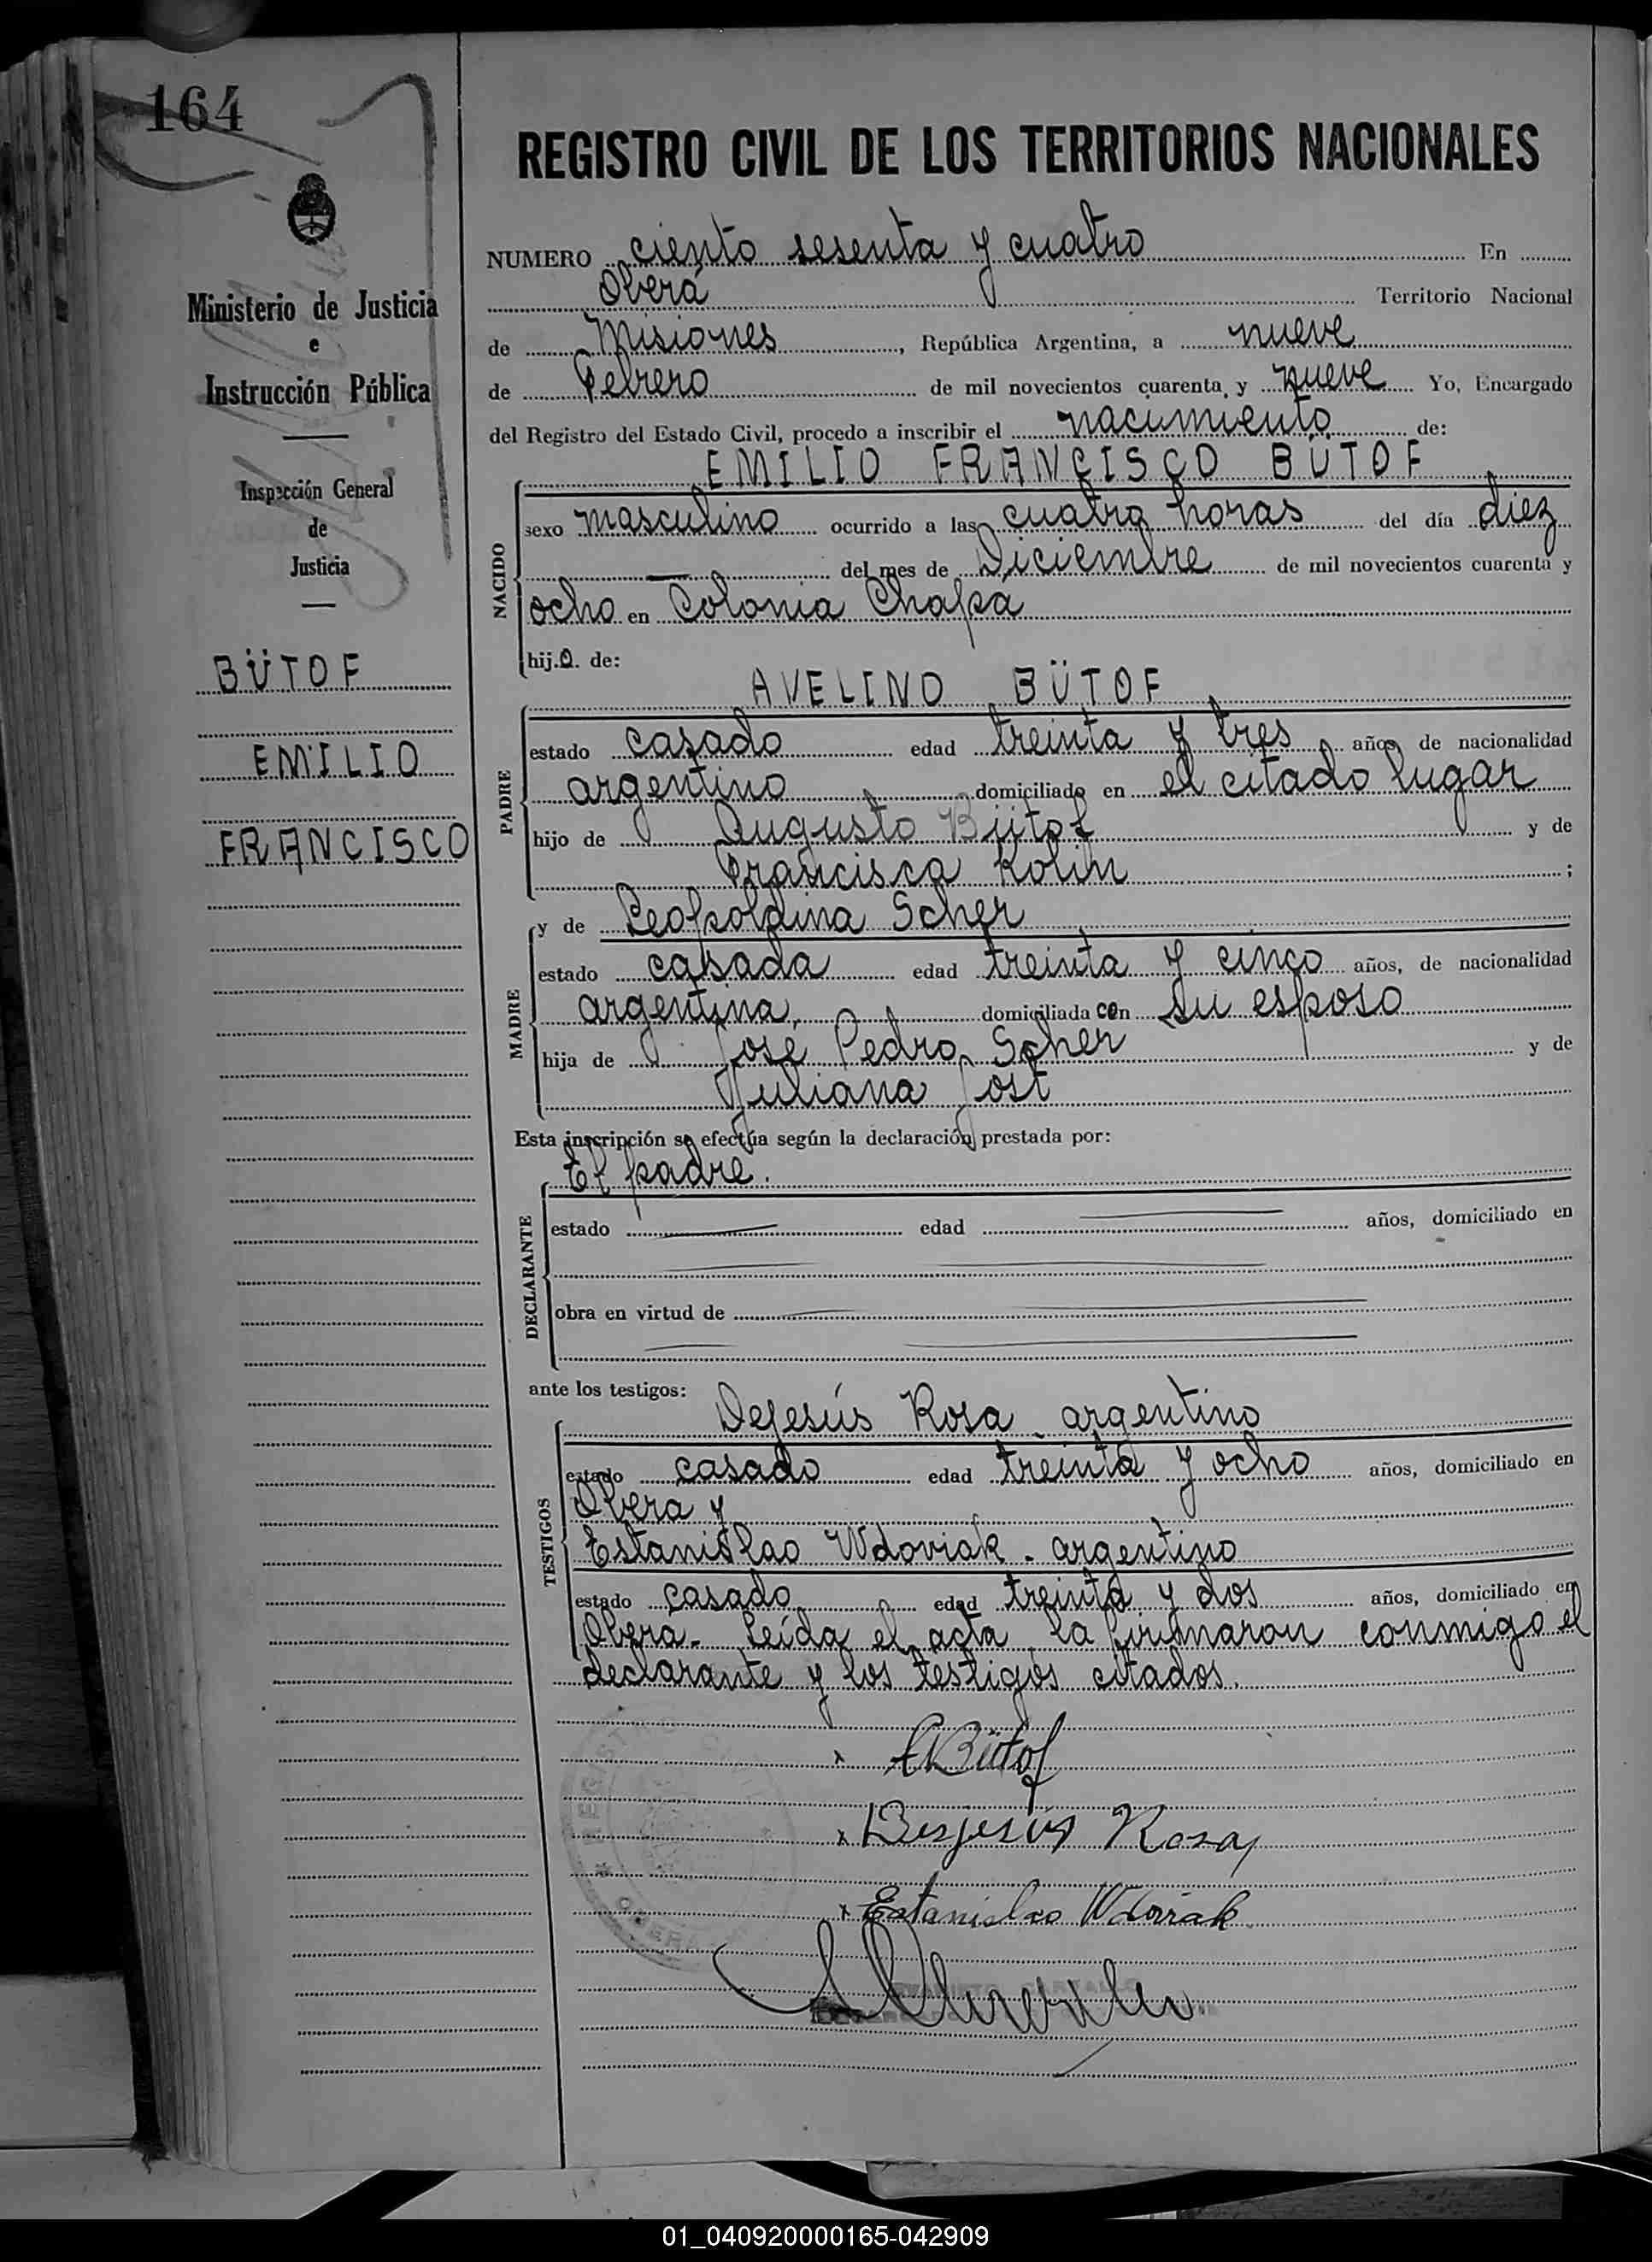 164
Ministerio de Justicia
e
Instrucción Pública
Inspección General
de
Justicia
BÜTOF
EMILIO
FRANCISCO
REGISTRO CIVIL DE LOS TERRITORIOS NACIONALES
NUMERO ciento sesenta y cuatro En
Oberá Territorio Nacional
de Misiones, República Argentina, a nueve
de Febrero de mil novecientos cuarenta y nueve Yo, Encargado
del Registro del Estado Civil, procedo a inscribir el nacimiento de:
EMILIO FRANCISCO BÜTOF
NACIDO
sexo masculino ocurrido a las cuatro horas del día diez
del mes de Diciembre de mil novecientos cuarenta y
ocho en Colonia Chapá
hij.o. de:
AVELINO BÜTOF
PADRE
estado casado edad treinta y tres años, de nacionalidad
argentino domiciliado en el citado lugar
hijo de Augusto Bütof y de
Francisca ;
y de Leopoldina Scher
MADRE
estado casada edad treinta y cinco años, de nacionalidad
argentina, domiciliada con su esposo
hija de José Pedro Scher y de
Juliana Jost
Esta inscripción se efectúa según la declaración prestada por:
El padre.
DECLARANTE
estado edad años, domiciliado en
obra en virtud de
ante los testigos:
Dejesús Rosa argentino
TESTIGOS
estado casado edad treinta y ocho años, domiciliado en
Oberá y
Estanislao Wdoviak - argentino
estado casado edad treinta y dos años, domiciliado en
Oberá.- Leída el acta la firmaron conmigo el
declarante y los testigos citados.
x ABütof
x Desjesús Rosa
x Estanislao Wdoviak
REGISTRO
OBERA
01_040920000165-042909